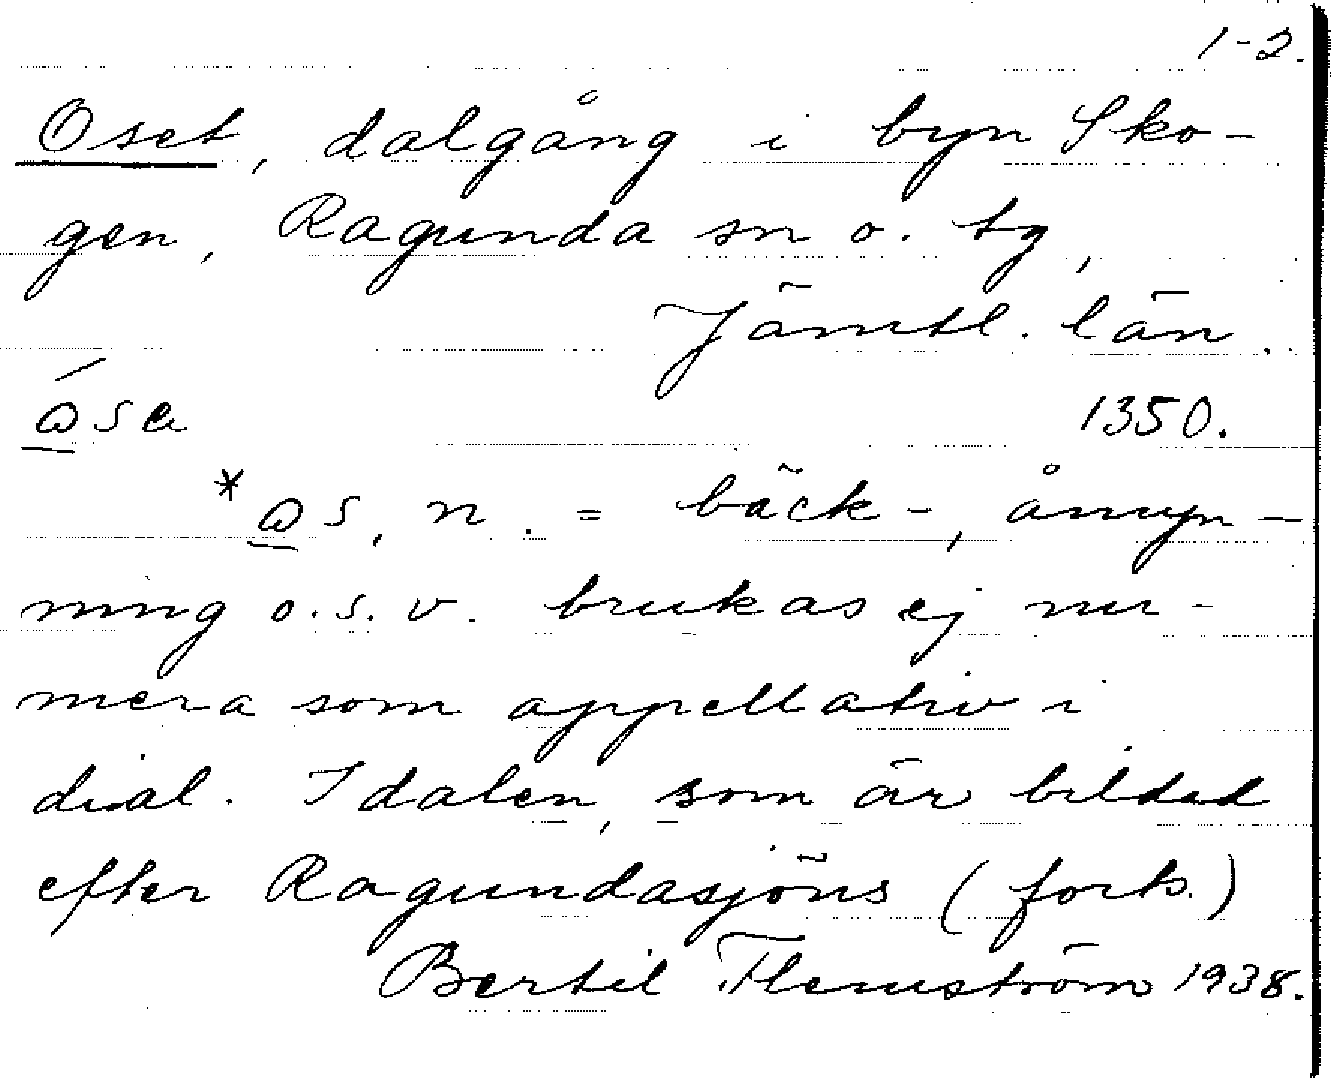 1-2.
Oset, dalgång i byn Sko-
gen, Ragunda sn o. tg,
Jämtl. län.
ó̱sa 1350.
*o̱s, n. = bäck-, åmyn-
ning o.s.v. brukas ej nu-
mera som appellativ i
dial. I dalen, som är bildad
efter Ragundasjöns (forts.)
Bertil Flemström 1938.